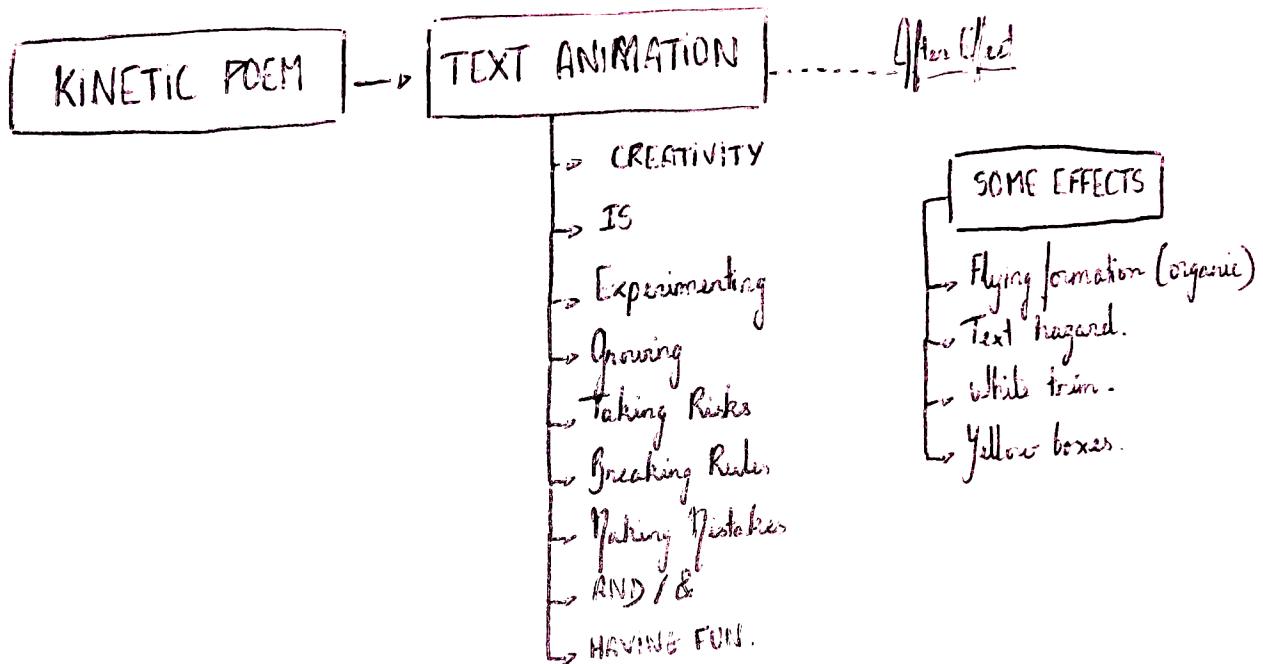 KiNETiC POEM
TEXT ANiMATiON
After Effect
CREATiViTY
IS
Experimenting
Growing
Taking Risks
Breaking Rules
Making Mistakes
AND / &
HAVING FUN.
SOME EFFECTS
Flying formation (organic)
Text hazard.
White trim.
Yellow boxes.